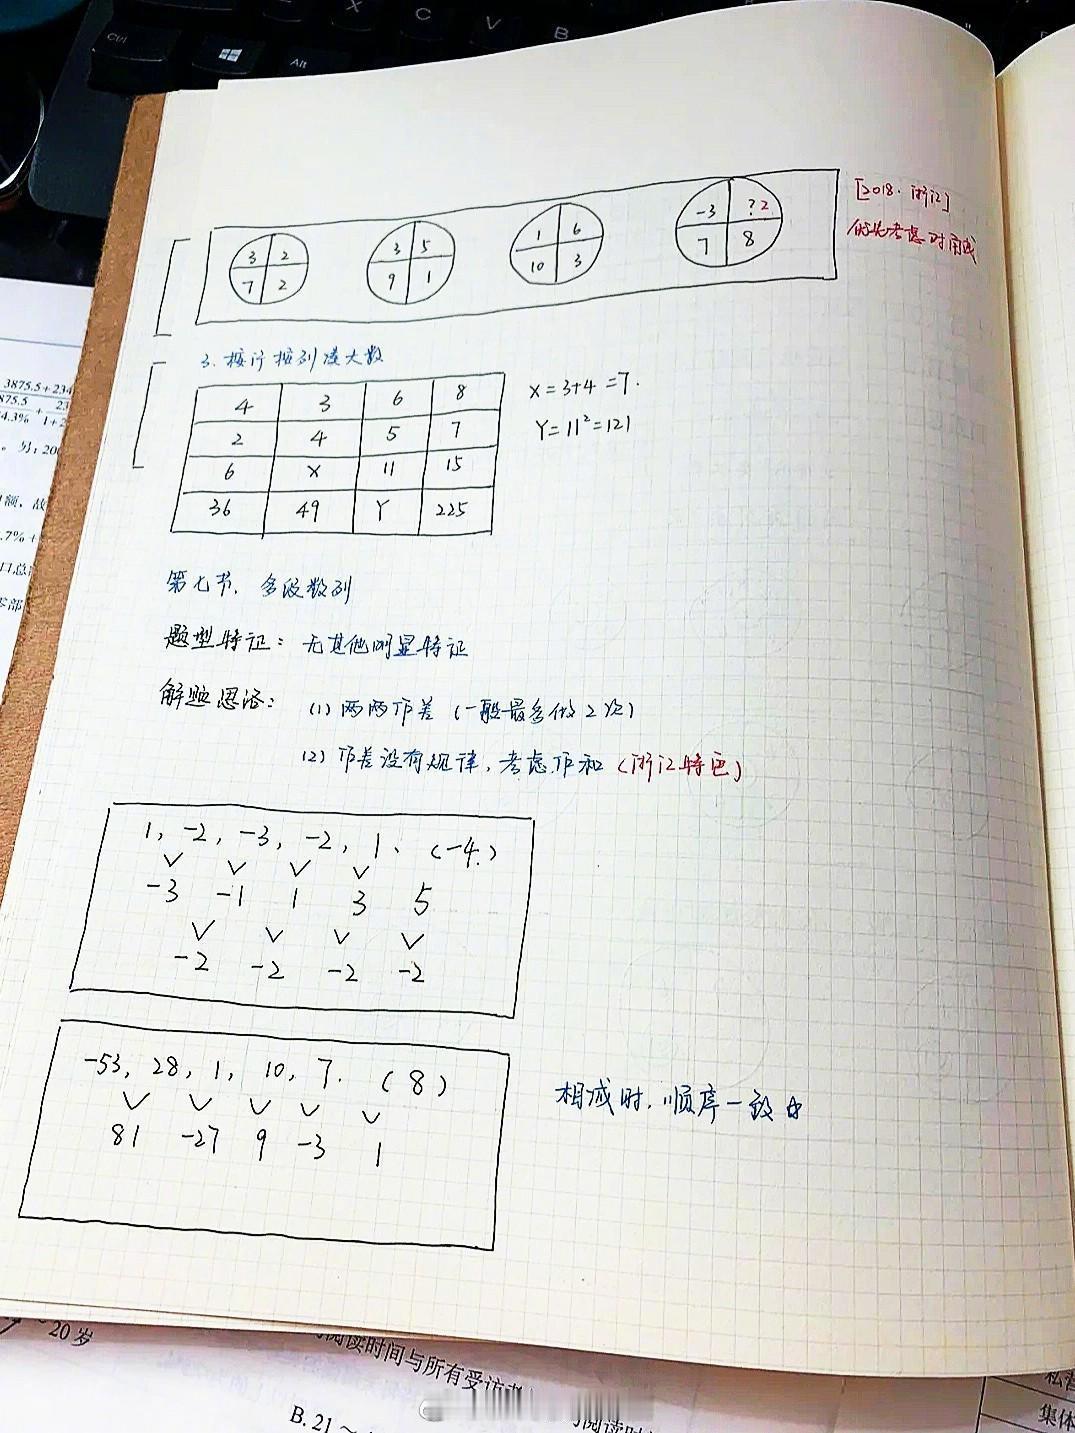 X C V B
Ctrl
Alt
[2018·浙江]
优先考虑对角线
3 2
7 2
3 5
9 1
1 6
10 3
-3 ?2
7 8
3.按行按列凑大数
4 3 6 8
2 4 5 7
6 X 11 15
36 49 Y 225
X=3+4=7.
Y=11²=121
第七节、多级数列
题型特征：无其他明显特征
解题思路：(1)两两作差(一般最多做2次)
(2)作差没有规律，考虑作和(浙江特色)
1, -2, -3, -2, 1、(-4.)
-3 -1 1 3 5
-2 -2 -2 -2
-53, 28, 1, 10, 7. (8)
81 -27 9 -3 1
相减时，顺序一致
3875.5+234
875.5
4.3%
1+2
.7%+
20岁
阅读时间与所有受访者
B. 21～
阅读时
集体